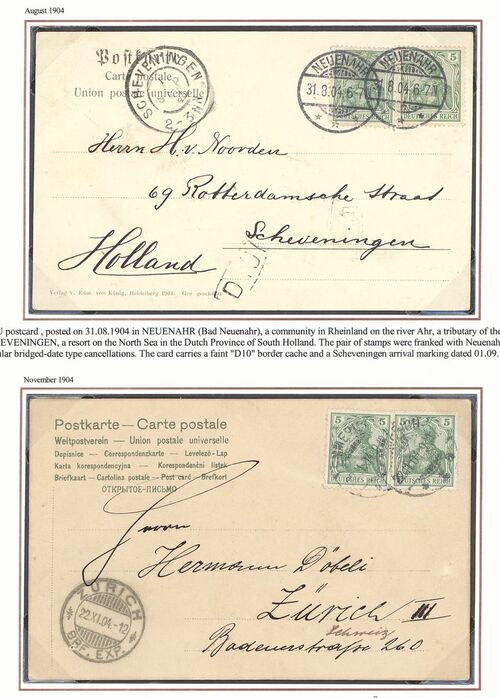 August 1904
Postkarte
Carte postale
Union postale universelle
SCHEVENINGEN
NEUENAHR
31.8.04.6-7N
NEUENAHR
31.8.04.6-7N
5
5
DEUTSCHES REICH
DEUTSCHES REICH
Herrn H. v. Noorden
69 Rotterdamsche Straat
Scheveningen
Holland
D
Verlag v. Edm. von König, Heidelberg 1904. Ges. geschützt
U postcard , posted on 31.08.1904 in NEUENAHR (Bad Neuenahr), a community in Rheinland on the river Ahr, a tributary of the
EVENINGEN, a resort on the North Sea in the Dutch Province of South Holland. The pair of stamps were franked with Neuenah
ular bridged-date type cancellations. The card carries a faint "D10" border cache and a Scheveningen arrival marking dated 01.09.
November 1904
Postkarte — Carte postale
Weltpostverein — Union postale universelle
Dopisnice — Correspondenzkarte — Levelező-Lap
Karta korespondencyjna — Korespondenční lístek
Briefkaart — Cartolina postale — Post card — Brefkort
ОТКРЫТОЕ-ПИСЬМО
5 5
5 5
DEUTSCHES REICH
DEUTSCHES REICH
Herrn
Hermann Döbeli
Zürich III
Schweiz
Badenerstraße 260
ZÜRICH
22.XI.04.-12
BRF. EXP.